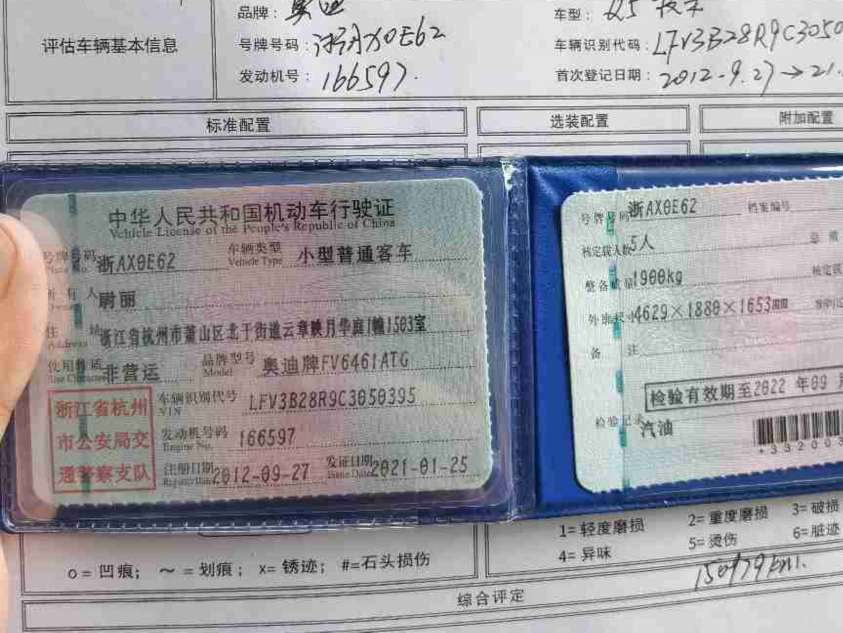 品牌：奥迪 车型：Q5
评估车辆基本信息 号牌号码：浙AX0E62 车辆识别代码：LFV3B28R9C3050
发动机号：166597. 首次登记日期：2012-9.27→21.
标准配置 选装配置 附加配置
中华人民共和国机动车行驶证
Vehicle License of the People's Republic of China
号牌号码 浙AX0E62 车辆类型 小型普通客车
Plate No. Vehicle Type
所有人 尉丽
住址 浙江省杭州市萧山区北干街道云章映月华庭1幢1503室
Address
使用性质 非营运 品牌型号 奥迪牌FV6461ATG
Use Character Model
浙江省杭州
市公安局交
通警察支队
车辆识别代号 LFV3B28R9C3050395
VIN
发动机号码 166597
Engine No.
注册日期 2012-09-27 发证日期 2021-01-25
Register Date Issue Date
号牌号码 浙AX0E62 档案编号
核定载人数 5人 总质
整备质量 1900kg 核定载
外廓尺寸 4629×1880×1653mm
备注
检验有效期至2022年09月
检验记录 汽油
*332003
o=凹痕； ～=划痕； x=锈迹； #=石头损伤
1=轻度磨损 2=重度磨损 3=破损
4=异味 5=烫伤 6=脏迹
150979km.
综合评定